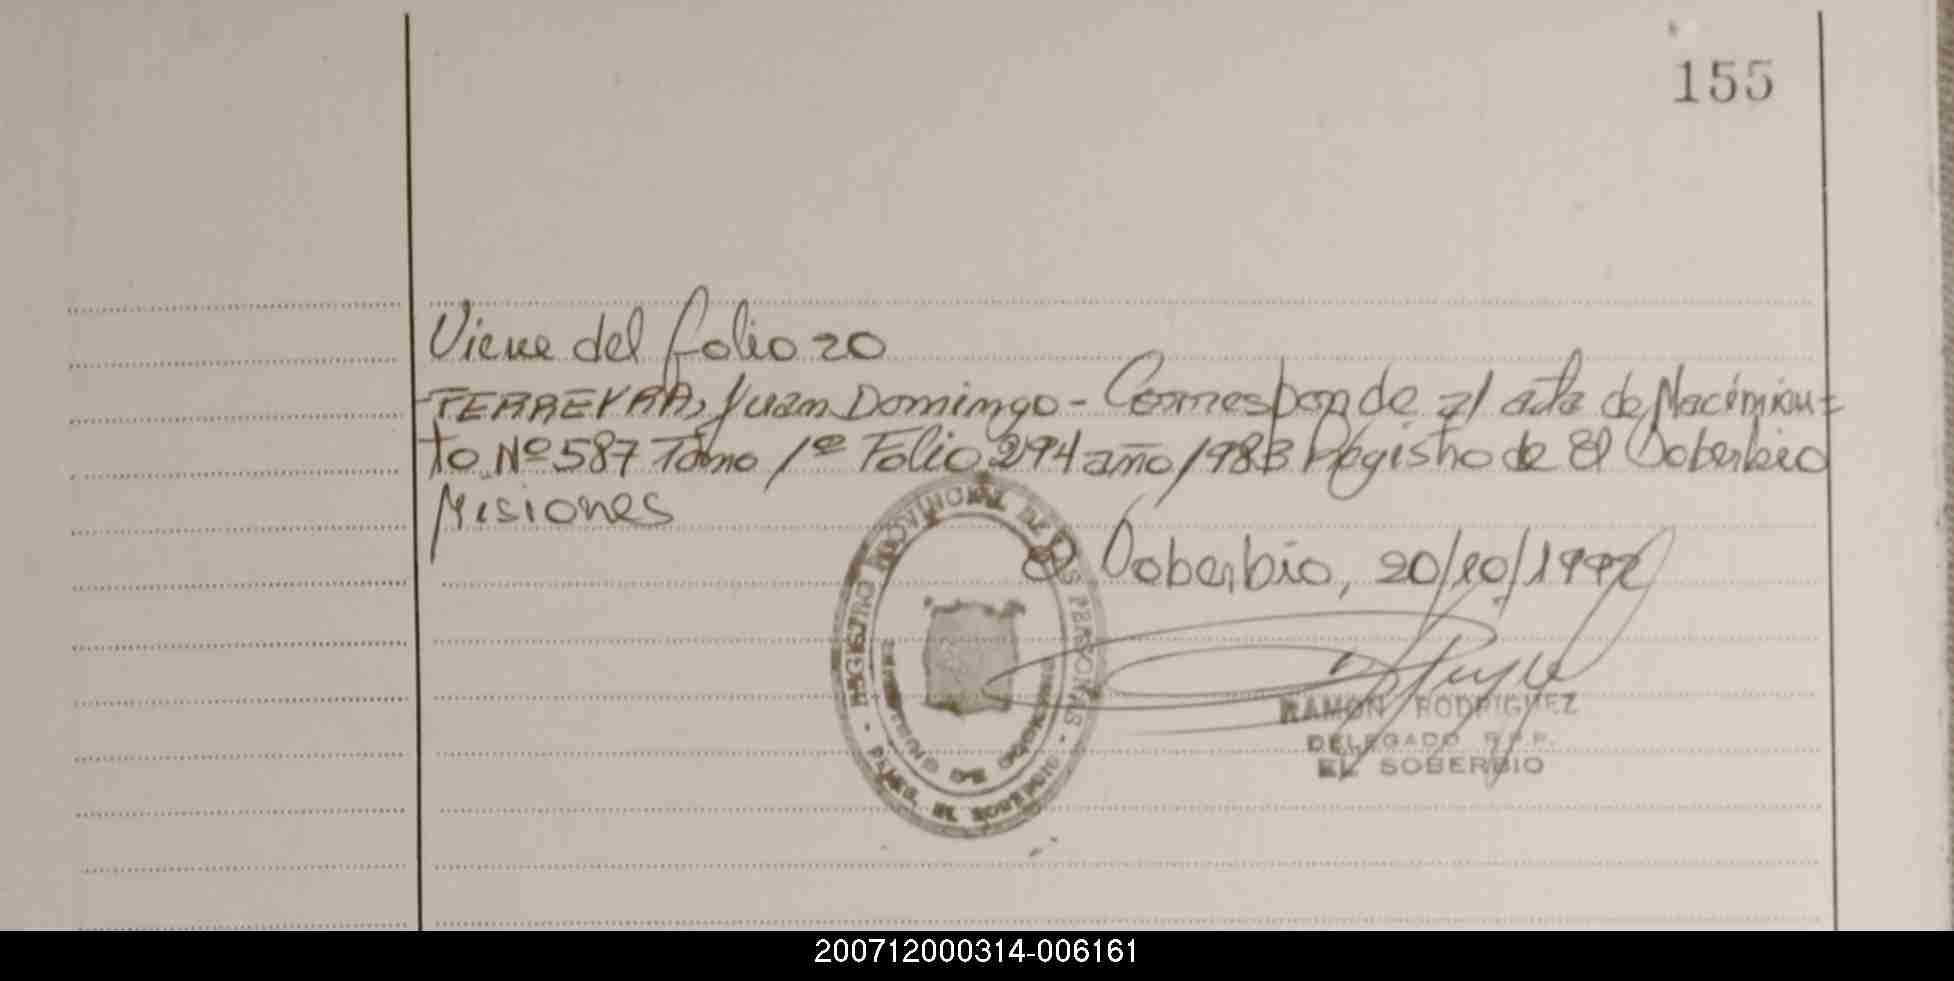 155
Viene del folio 20
FERREYRA, Juan Domingo - Corresponde al acta de Nacimien-
to Nº 587 Tomo 1º Folio 294 año 1983 Registro de El Soberbio
Misiones
El Soberbio, 20/10/1992
REGISTRO PROVINCIAL DE LAS PERSONAS
DELEG. EL SOBERBIO
RAMON RODRIGUEZ
DELEGADO R.P.P.
EL SOBERBIO
200712000314-006161